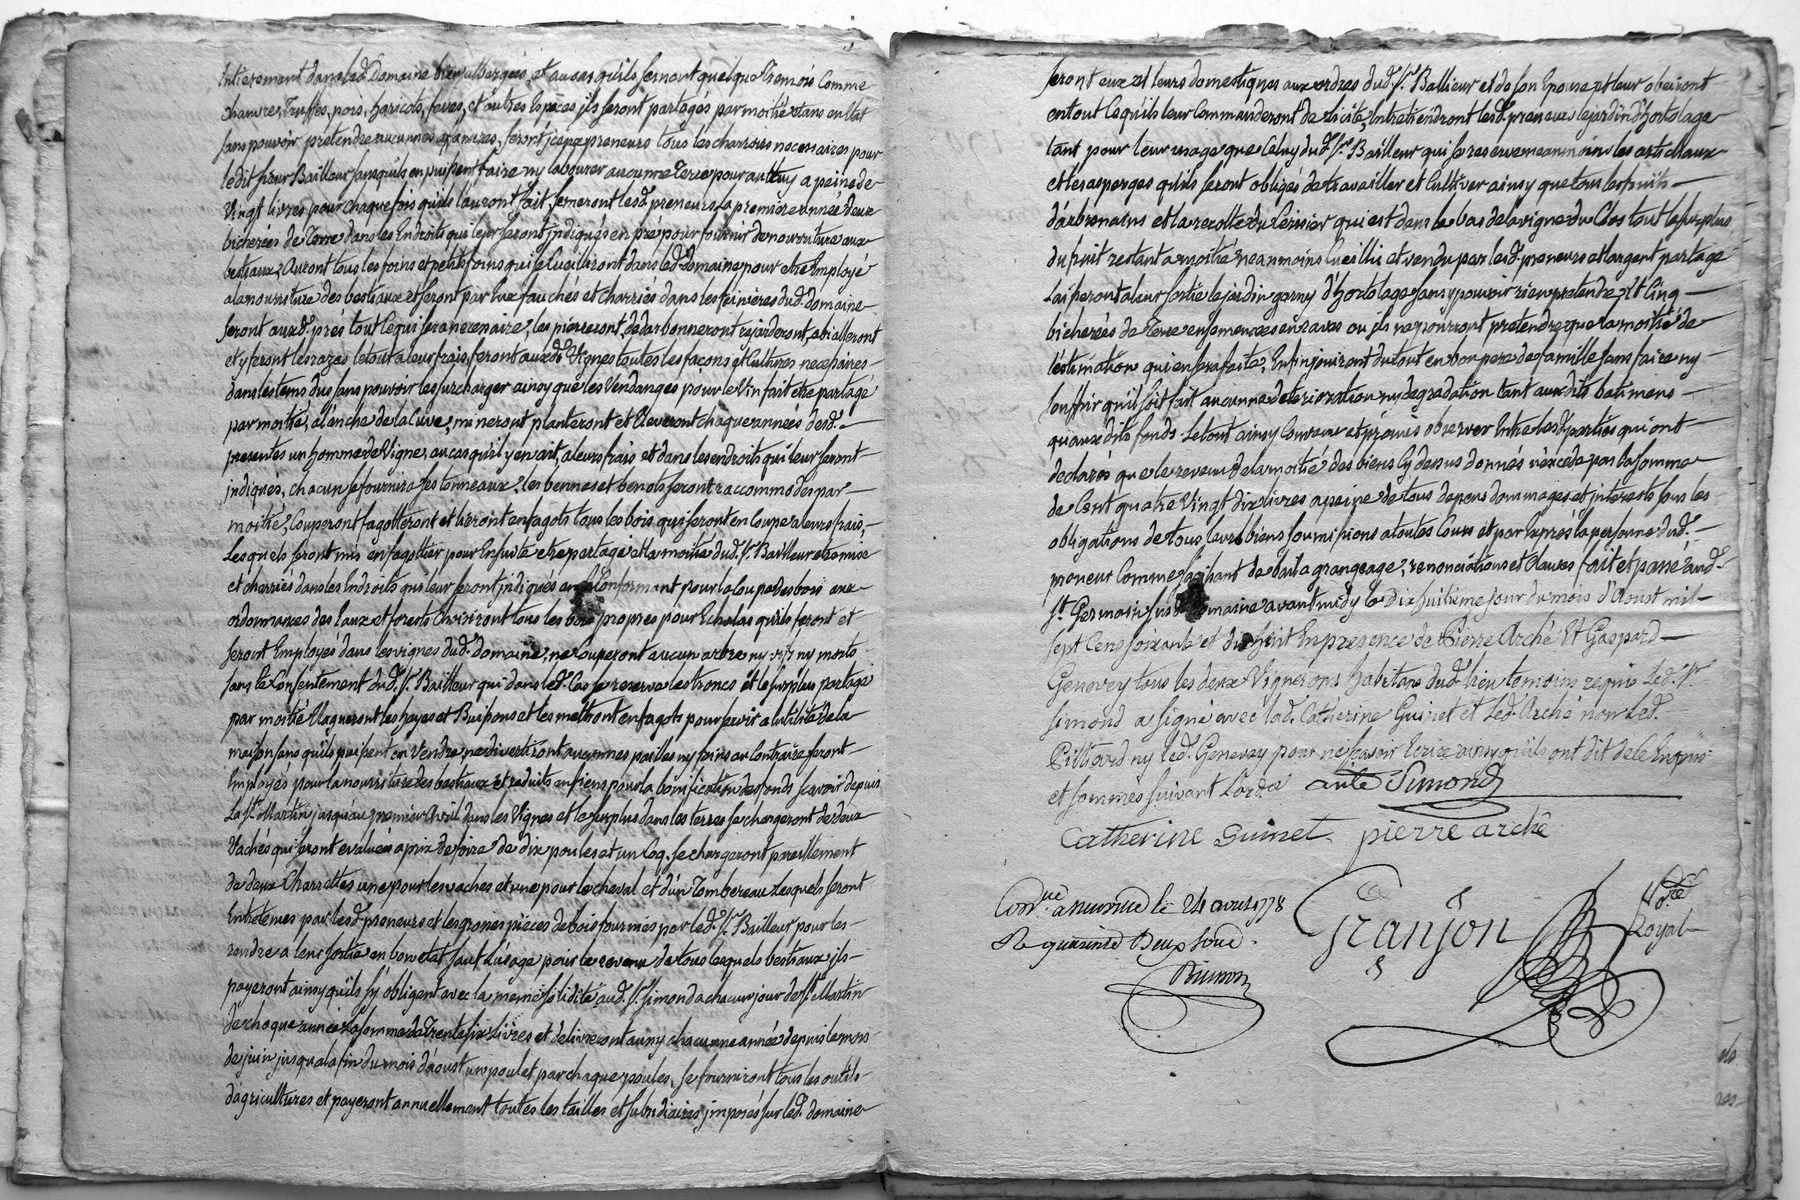 Entierement dans led. Domaine bien albergées, et au cas qu'ils sement quelque Tremois Comme
chanvre, Truffes, pois, haricots, feves, et autres Espèces ils seront partagés par moitié
sans pouvoir pretendre aucunnes feront lesd. preneurs tous les charrois necessaires pour
ledit sieur Bailleur sans qu'ils en puissent faire ny labourer aucunne Terre pour auttruy a peine de
Vingt livres pour chaque fois qu'ils l'auront fait, semeront lesd. preneurs la premiere année deux
bicherées de Terre dans les Endroits qui leur seront jndiqués en pré pour fournir de nourriture aux
bestiaux, Auront tous les foins et petits foins qui se Cueilliront dans led. domaine pour etre Employé
a la nourriture des bestiaux et seront par Eux fauchés et charriés dans les feinières dud. domaine
feront auxd. prés tout ce qui sera necessaire, les
et y feront les razes le tout a leur frais, feront auxd. Vignes toutes les façons et Cultures necessaires
dans les tems dus sans pouvoir les surcharger ainsy que les Vendanges pour le Vin fait etre partagé
par moitié, a l'anche de la Cuve, mineront planteront et Eleveront chaque années desd.
presentes un homme de Vigne, au cas qu'il y en ait, a leurs frais et dans les endroits qui leur seront
jndiqués, chacun se fournira ses tonneaux, les bennes et benots seront raccommodés par
moitié, Couperont fagotteront et lieront en fagots tous les bois qui seront en Coupe a leurs frais,
Lesquels seront mis en fagottier pour Ensuite etre partagé et la moitié dud. Sr. Bailleur etre mise
et charriés dans les Endroits qui leur seront jndiqués en se Conformant pour la Coupe des bois aux
ordonnances des Eaux et forests Choisiront tous les bois propres pour Echalas qu'ils feront et
seront Employés dans les vignes dud. domaine, ne Couperont aucun arbre ny vifs ny morts
sans le Consentement dud. Sr. Bailleur qui dans led. Cas se reserve les troncs et le surplus partagé
par moitié Elagueront les hayes et Buissons et les mettront en fagots pour servir a l'utilité de la
maison sans qu'ils puissent en Vendre, ne divertiront aucunnes pailles ny foins au Contraire seront
Employés pour la nourriture des bestiaux et reduits en fiens pour la bonification des fonds scavoir depuis
La St. Martin jusqu'au premier Avril dans les Vignes et le surplus dans les terres se chargeront de deux
Vaches qui seront evaluées a prix de foire de dix poules et un Coq. se chargeront pareillement
de deux Charrettes une pour les vaches et une pour le cheval et d'un Tombereau Lesquels seront
Entretenus par lesd. preneurs et les grosses pieces de bois fournies par led. Sr. Bailleur pour les
rendre a leur sortie en bon etat sauf L'usage pour le revenu de tous lesquels bestiaux ils
payeront ainsy qu'ils s'y obligent avec la meme solidité aud. Sr. Simond a chacun jour de St. Martin
de chaque année La somme de Trente six Livres et delivreront aussy chacunne année depuis le mois
de juin jusqu'a la fin du mois d'aoust un poulet par chaque poules, se fourniront tous les outils
d'agricultures et payeront annuellement toutes les tailles et subsidiaires jmposés sur led. domaine
seront eux et leurs domestiques aux ordres dud. Sr. Bailleur et de son Epouse et leur obeiront
en tout Ce qu'ils leur Commanderont de licite, Entretiendront lesd. preneurs le jardin d'hortolage
tant pour leur usage que Celuy dud. Sr. Bailleur qui se reserve neanmoins les artichaux
et les asperges qu'ils seront obligés de travailler et Cultiver ainsy que tous les fruits
d'arbres nains et la recolte du Cerisier qui est dans le bas de la vigne du Clos tout le surplus
du fruit restant a moitié neanmoins Cueillis et vendu par lesd. preneurs et l'argent partagé
Laisseront a leur sortie le jardin garny d'hortolage sans y pouvoir rien pretendre, Et Cinq
bicherées de Terre ensemencées en raves ou ils ne pourront pretendre que la moitié de
l'estimation qui en sera faite, Enfin jouiront du tout en bon pere de famille sans faire ny
souffrir qu'il soit fait aucunne deterioration ny degradation tant auxdits batimens
qu'auxdits fonds Le tout ainsy Convenu et promis observer Entre lesd. parties qui ont
declarés que le revenu de la moitié des biens Cy dessus donnés n'excede pas la somme
de Cent quatre Vingt dix livres a peine de tous depens dommages et interests sous les
obligations de tous leurs biens soumissions a toutes Cours et par Exprès la personne dud.
preneur Comme s'agissant de bail a grangeage, renonciations et Clauses fait et passé aud.
St. Germain susd. Domaine avant midy le Dix huitieme jour du mois d'Aoust mil
sept Cens soixante et dix huit En presence de Pierre Arché Et Gaspard
Genevey tous les deux Vignerons habitans dud. lieu temoins requis Led. Sr.
Simond a signé avec lad. Catherine Guinet et led. Arché non led.
Billiard ny led. Genevey pour ne scavoir Ecrire ainsy qu'ils ont dit de ce Enquis
et sommés suivant L'ordce Simond
Catherine Guinet pierre arché
a neuville le 24 aoust 1778
Re quarante Deux sous
Granjon Nore Royal